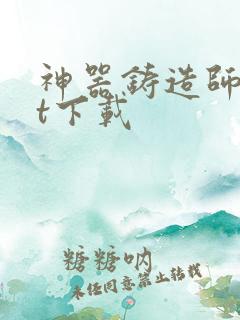 神器鋳造師
t下載
糖糖吶
未经同意禁止转载